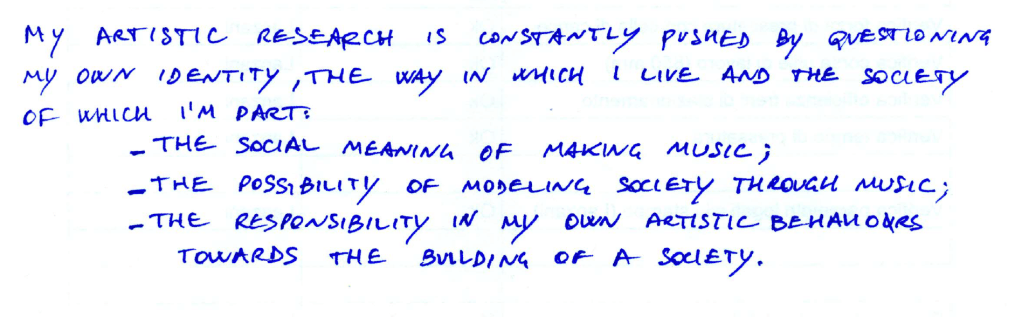 MY ARTISTIC RESEARCH IS CONSTANTLY PUSHED BY QUESTIONING
MY OWN IDENTITY, THE WAY IN WHICH I LIVE AND THE SOCIETY
OF WHICH I'M PART:
- THE SOCIAL MEANING OF MAKING MUSIC;
- THE POSSIBILITY OF MODELING SOCIETY THROUGH MUSIC;
- THE RESPONSIBILITY IN MY OWN ARTISTIC BEHAVIOURS
TOWARDS THE BUILDING OF A SOCIETY.